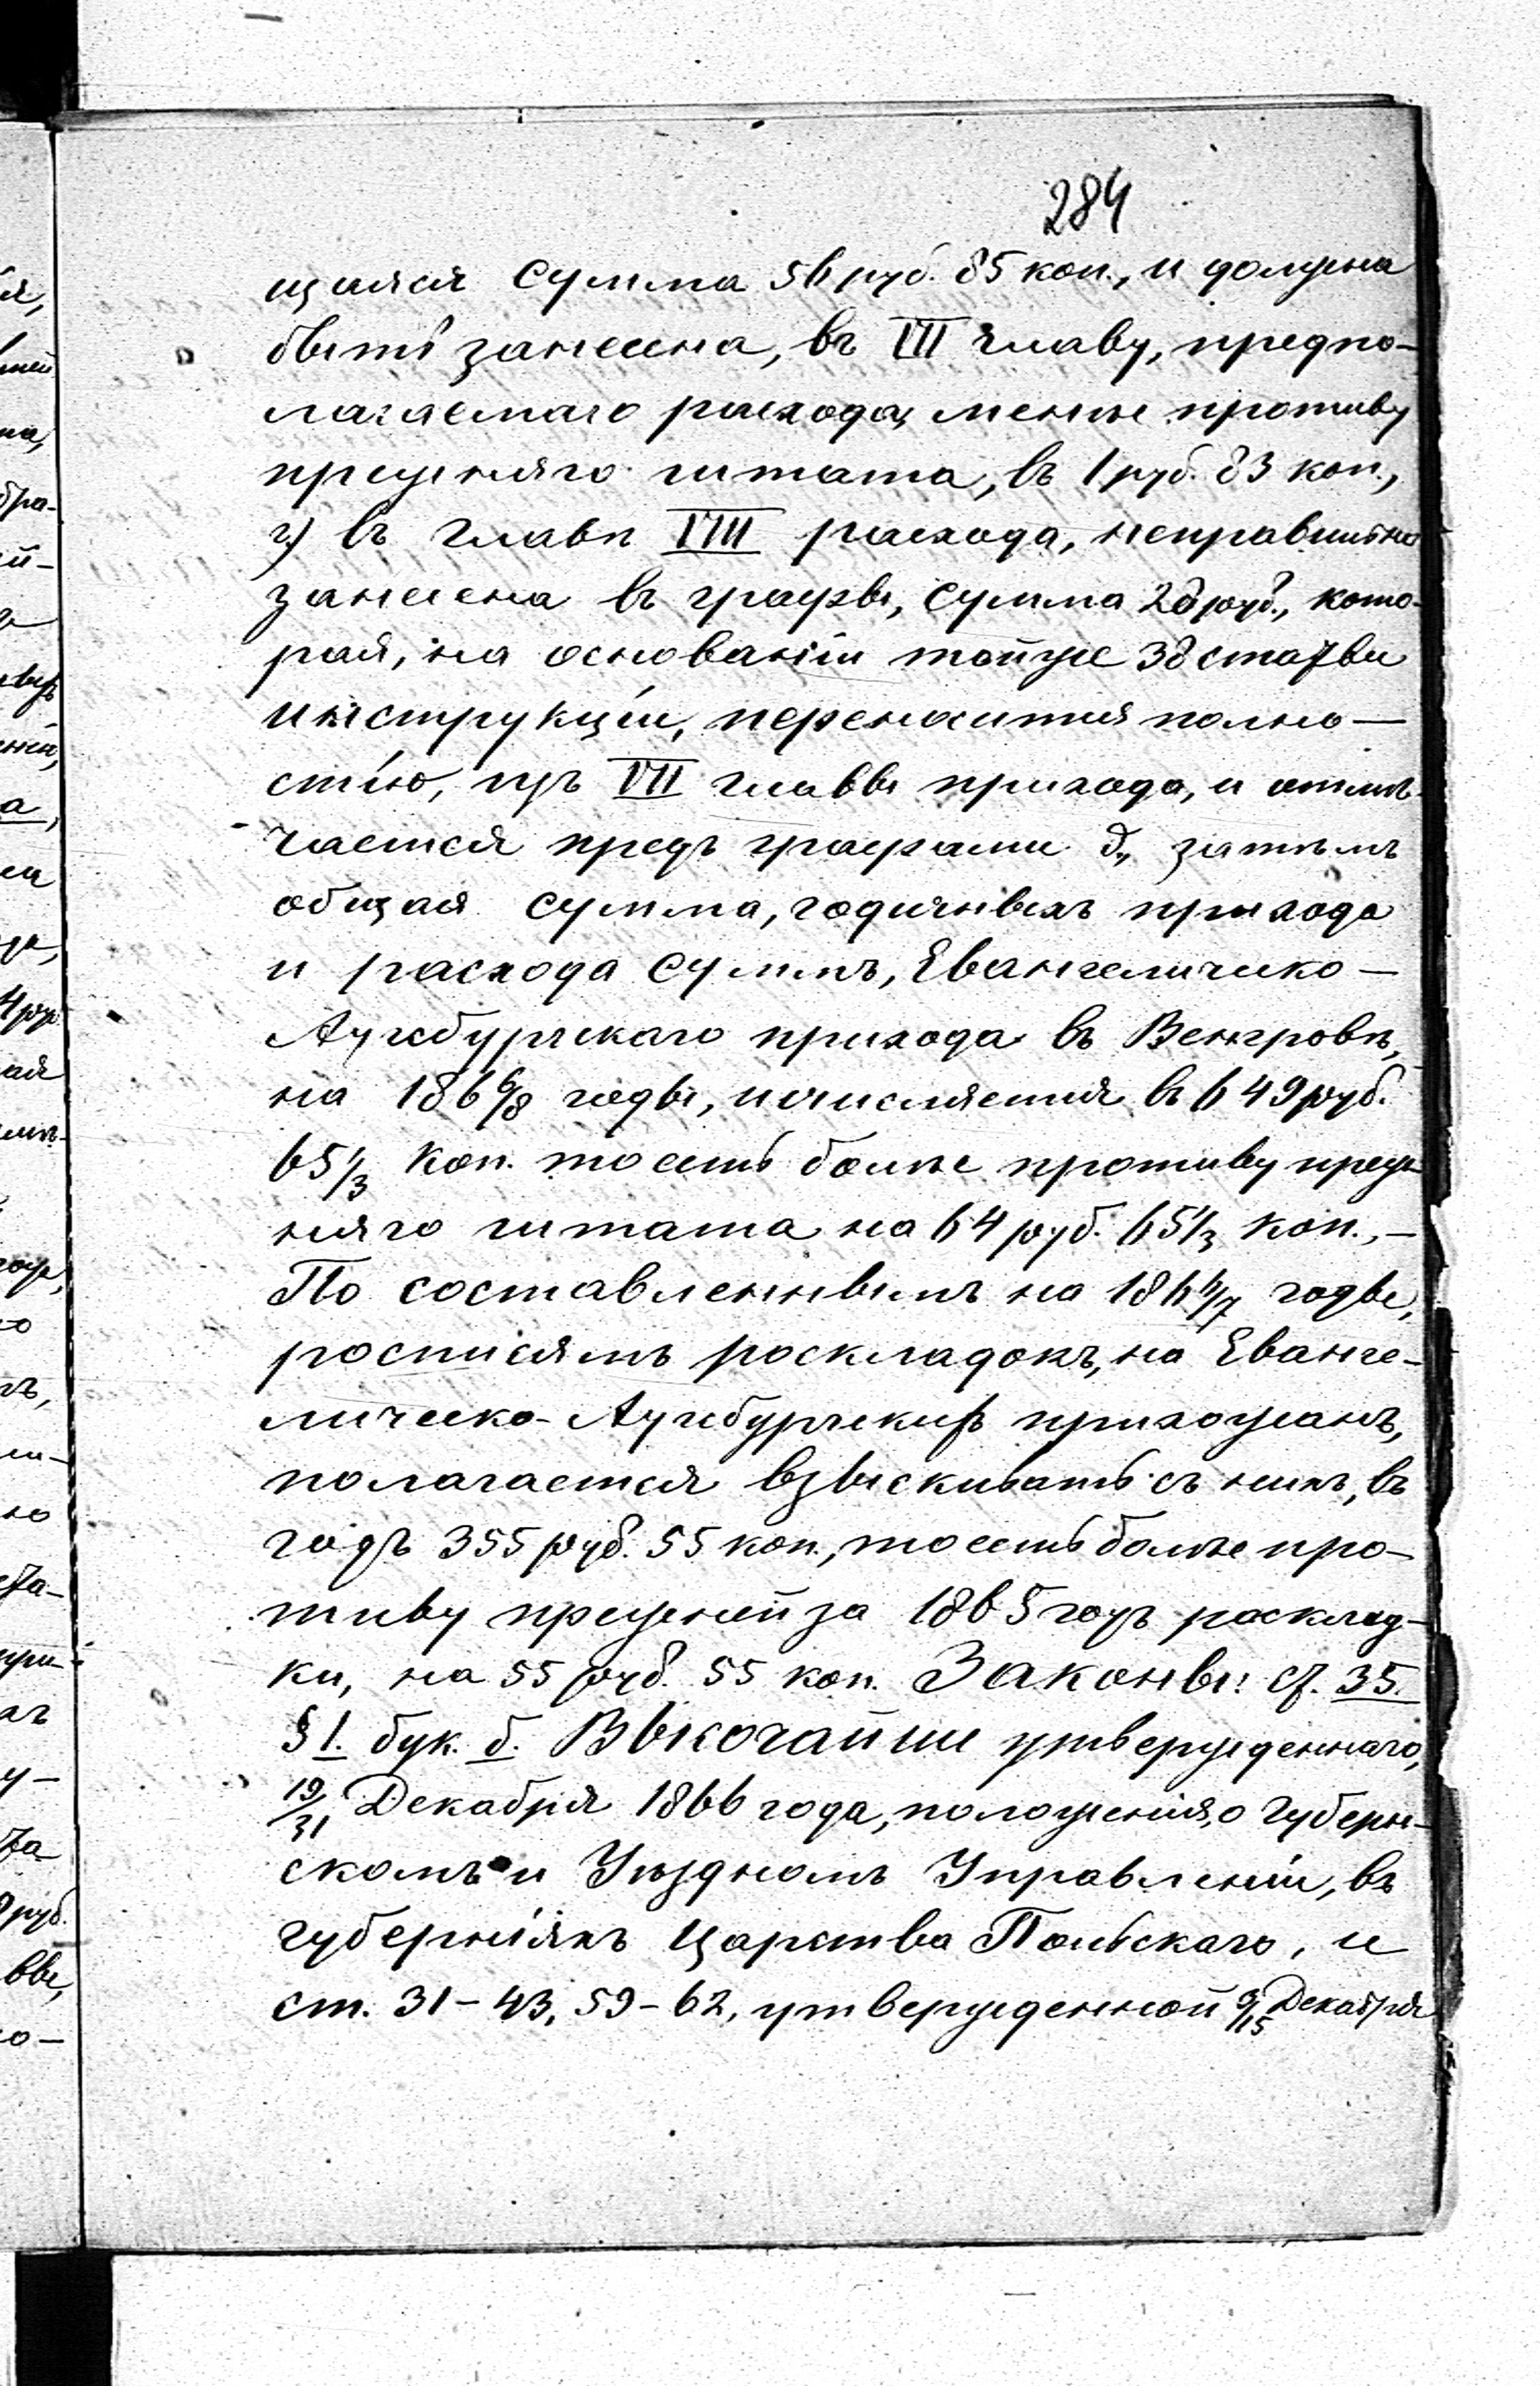 284
щаяся сумма 56 руб. 85 коп., и должна
быть занесена, въ VII главу, предпо-
лагаемаго расхода, менѣе противу
прежняго штата, въ 1 руб. 83 коп.,
г) въ главѣ VIII расхода, неправильно
занесена въ графы, сумма 28 руб., кото-
рая, на основаніи тойже 38 статьи
инструкціи, переносится полно-
стію, изъ VII главы прихода, и отмѣ-
чается предъ графами д., затѣмъ
общая сумма, годичныхъ прихода
и расхода суммъ, Евангеличико-
Аугсбургскаго прихода въ Венгровѣ,
на 186 6/8 годы, исчисляется въ 649 руб.
65 1/3 коп. то есть болѣе противу преж-
няго штата на 64 руб. 65 1/3 коп.,-
По составленнымъ на 186 6/7 годы,
росписямъ роскладокъ, на Еванге-
лическо-Аугсбургскихъ прихожанъ,
полагается взыскивать съ нихъ, въ
годъ 355 руб. 55 коп., то есть болѣе про-
тиву прежней за 1865 годъ расклад-
ки, на 55 руб. 55 коп. Законы: ст. 35.
§ 1. бук. б. Высочайше утвержденнаго,
19/31 Декабря 1866 года, положенія, о Губерн-
скомъ и Уѣздномъ Управленіи, въ
губерніяхъ Царства Польскаго, и
ст. 31-43, 59-62, утвержденной /15 Декабря
я,
на,
бра-
а,
ая
го
ста-
при-
та
руб.
вы,
о-